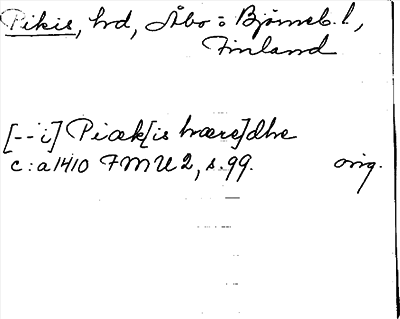 Pikis, hrd, Åbo o Björneb. l,
Finland
[--i] Piæk[is hære]dhe
c:a 1410 FMU 2, s. 99. orig.